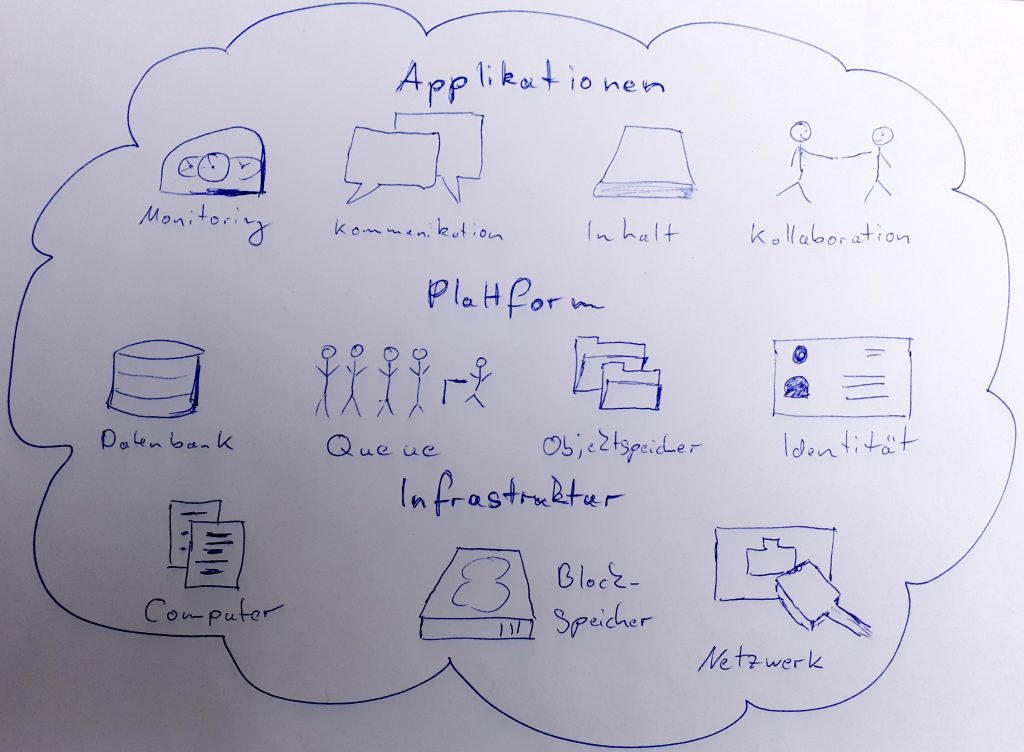 Applikationen
Monitoring
Kommunikation
Inhalt
Kollaboration
Plattform
Datenbank
Queue
Objektspeicher
Identität
Infrastruktur
Computer
Block-
speicher
Netzwerk